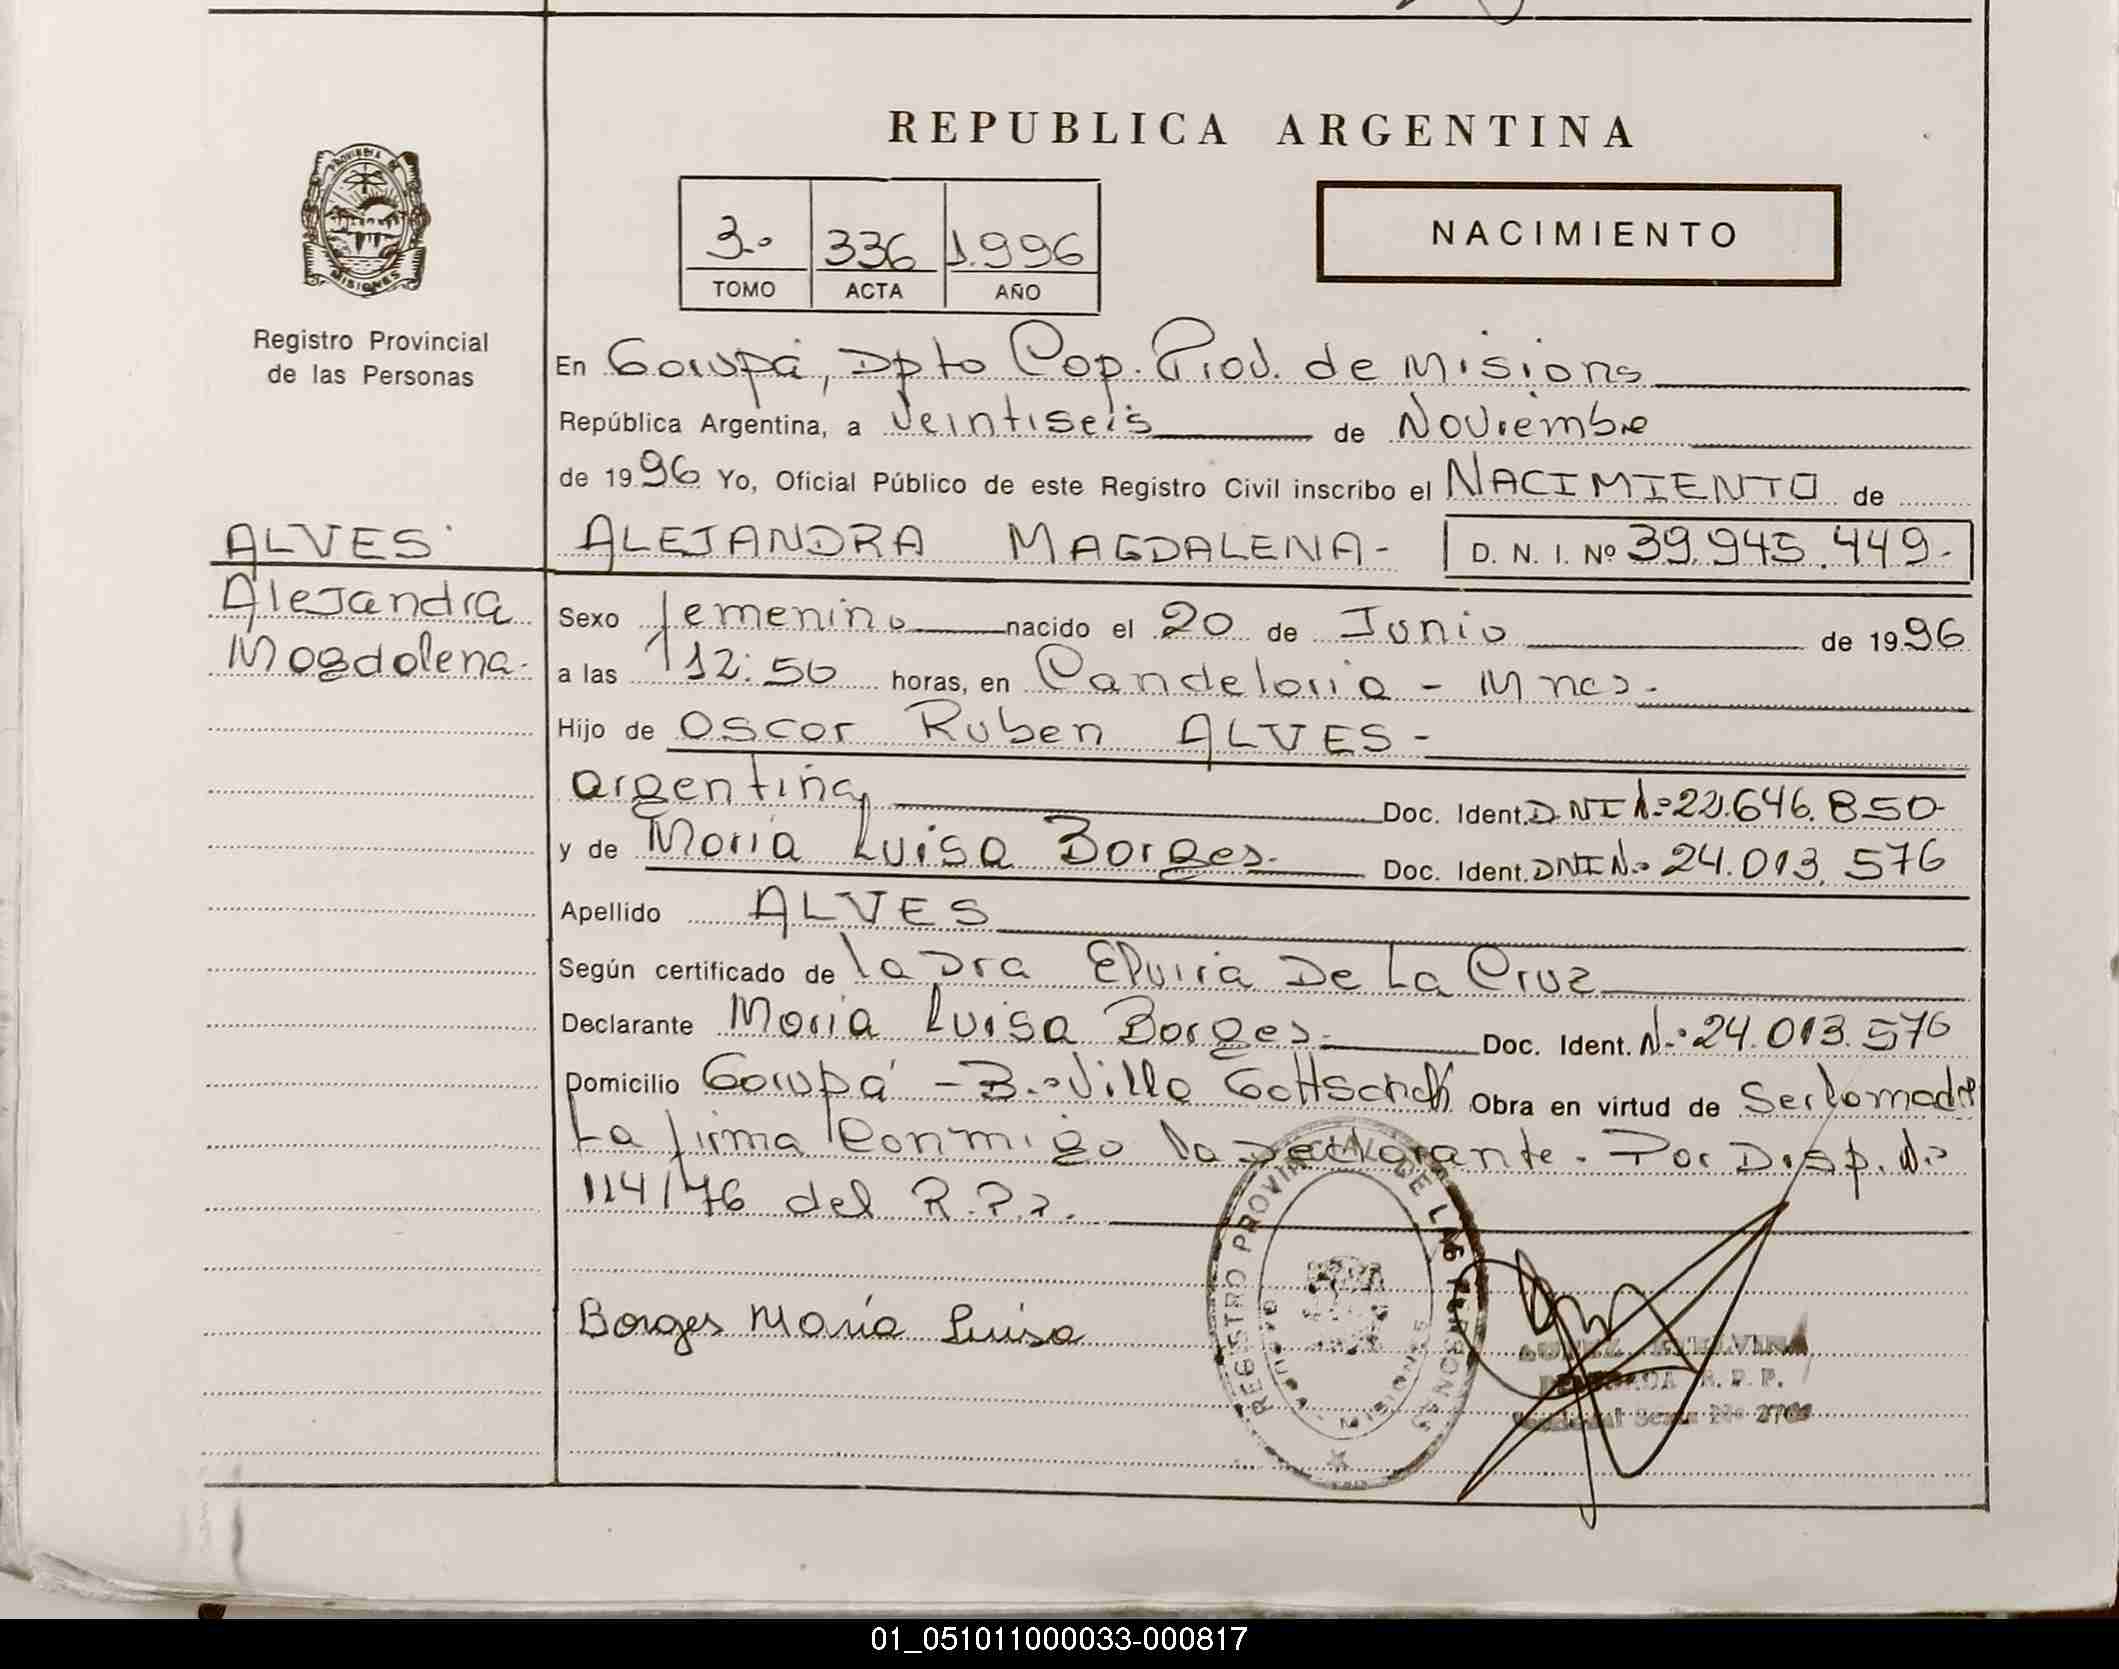 REPUBLICA ARGENTINA
PROVINCIA DE
MISIONES
3.º 336 1.996
TOMO ACTA AÑO
NACIMIENTO
Registro Provincial
de las Personas
En Garupá, Dpto Cap. Prov. de Misions
República Argentina, a veintiseis de Noviembre
de 1996 Yo, Oficial Público de este Registro Civil inscribo el NACIMIENTO de
ALVES
ALEJANDRA MAGDALENA- D. N. I. Nº 39.945.449-
Alejandra
Magdalena.
Sexo femenino nacido el 20 de Junio de 1996
a las 12:50 horas, en Candelaria - Mnes.
Hijo de Oscar Ruben ALVES -
argentina Doc. Ident. DNI Nº 22.646.850-
y de María Luisa Borges. Doc. Ident. DNI Nº 24.013.576
Apellido ALVES
Según certificado de la Dra Elvira De La Cruz
Declarante María Luisa Borges. Doc. Ident. Nº 24.013.576
Domicilio Garupá - B.º Villa Obra en virtud de Ser la madre
La firma conmigo la Declarante. Por Disp. Nº
114/76 del R.P.P.
Borges María Luisa
REGISTRO PROVINCIAL DE LAS PERSONAS
MISIONES
R. P. P.
01_051011000033-000817